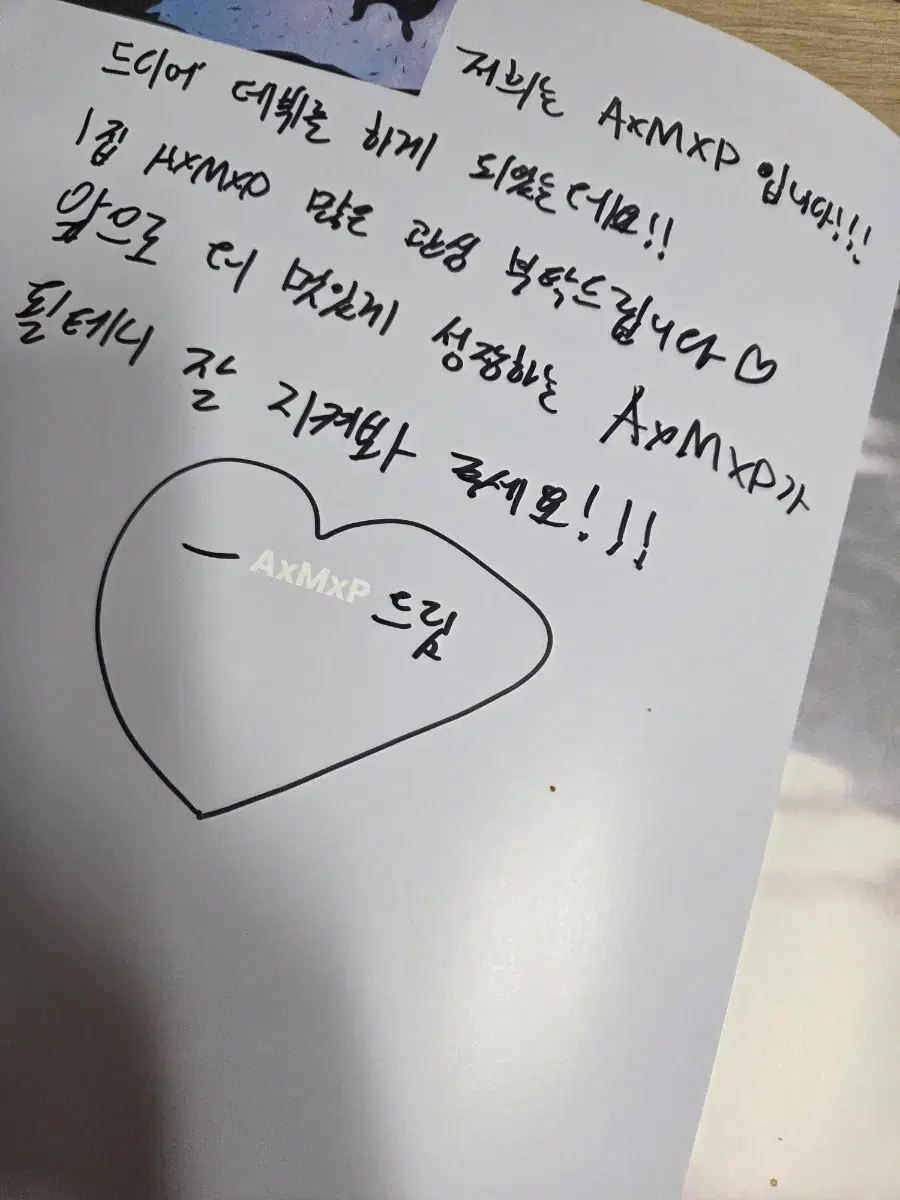 저희는 AxMxP 입니다!!!
드디어 데뷔를 하게 되었는데요!!
1집 AxMxP 많은 관심 부탁드립니다♡
앞으로 더 멋있게 성장하는 AxMxP가
될테니 잘 지켜봐 주세요!!!
— AxMxP 드림